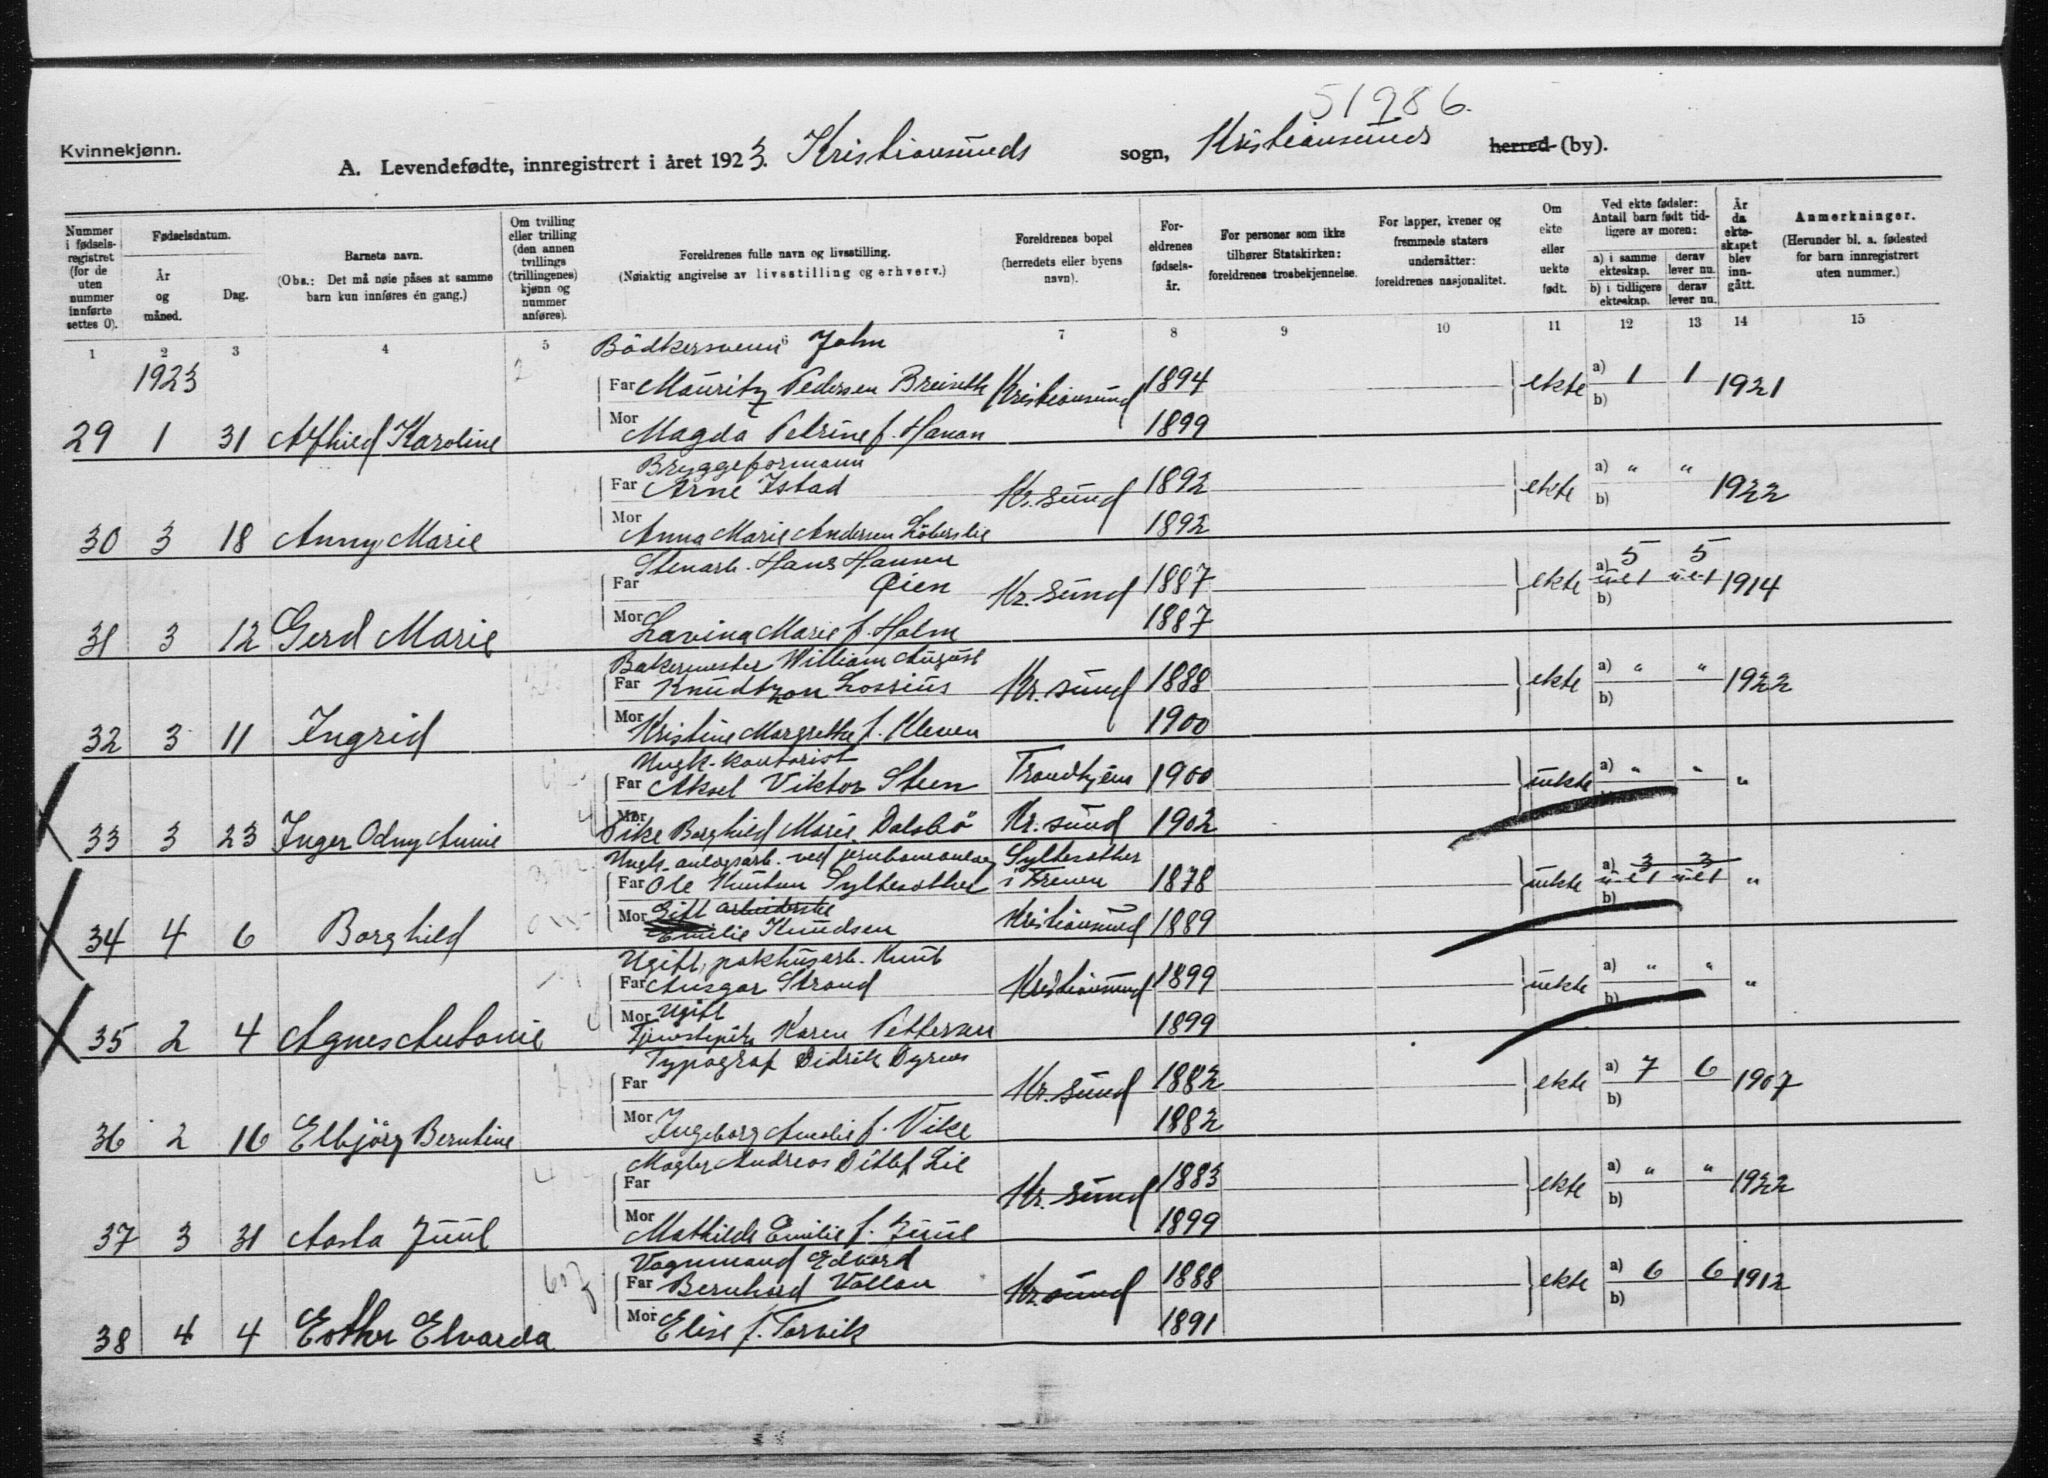 51986.
Kvinnekjønn.
A. Levendefødte, innregistrert i året 1923. Kristiansunds sogn, Kristiansunds herred (by).
Nummer i fødselsregistret (for de uten nummer innførte settes 0).
Fødselsdatum.
År og måned.
Dag.
Barnets navn.
(Obs.: Det må nøie påses at samme barn kun innføres én gang.)
Om tvilling eller trilling (den annen tvillings (trillingenes) kjønn og nummer anføres).
Foreldrenes fulle navn og livsstilling.
(Nøiaktig angivelse av livsstilling og erhverv.)
Foreldrenes bopel (herredets eller byens navn).
Foreldrenes fødselsår.
For personer som ikke tilhører Statskirken: foreldrenes trosbekjennelse.
For lapper, kvener og fremmede staters undersåtter: foreldrenes nasjonalitet.
Om ekte eller uekte født.
Ved ekte fødsler: Antall barn født tidligere av moren:
a) i samme ekteskap. derav lever nu.
b) i tidligere ekteskap. derav lever nu.
År da ekteskapet blev inngått.
Anmerkninger.
(Herunder bl. a. fødested for barn innregistrert uten nummer.)
1 2 3 4 5 6 7 8 9 10 11 12 13 14 15
1923
Bödkersvenn John
Far Mauritz Pedersen Breiseth Kristiansund 1894 ekte a) 1 1 1921
b)
29 1 31 Alfhild Karoline Mor Magda Petrine f. Hanan 1899
Bryggeformann
Far Arne Istad Kr.sund 1892 ekte a) " " 1922
b)
30 3 18 Anny Marie Mor Anna Marie Andersen 1892
Stenarb. Hans Hansen
Far Øien Kr.sund 1887 ekte a) 5 5 1914
uet uet
b)
31 3 12 Gerd Marie Mor Lavina Marie f. Holm 1887
Bakermester William August
Far Knudtzon Lossius Kr.sund 1888 ekte a) " " 1922
b)
32 3 11 Ingrid Mor Kristine Margrethe f. Kleven 1900
Ungk. kontorist
Far Aksel Viktor Steen Trondhjem 1900 uekte a) " " "
33 3 23 Inger Odny Annie Mor Pike Borghild Marie Dalabö Kr.sund 1902
Ungk. anlegsarb. ved jernbaneanleg Syltesether
Far Ole Knutsen Syltesether i Frenen 1878 uekte a) 3 3 "
uet uet
b)
34 4 6 Borghild Mor Gift arbeiderske Emilie Knudsen Kristiansund 1889
Ugift, pakhusarb. Knut
Far Ansgar Strand Kristiansund 1899 uekte a) " " "
b)
35 2 4 Agnes Antonie Mor Ugift
Tjenestepike Karen Pettersen 1899
Typograf Didrik Dyrnes
Far Kr.sund 1882 ekte a) 7 6 1907
b)
36 2 16 Elbjörg Berntine Mor Ingeborg Amalie f. Vike 1882
Megler Andreas Ditlef Lie
Far Kr.sund 1883 ekte a) " " 1922
b)
37 3 31 Aasta Juul Mor Mathilde Emilie f. Juul 1899
Vognmand Edvard
Far Bernhard Vollan Kr.sund 1888 ekte a) 6 6 1912
b)
38 4 4 Esther Elvarda Mor Elise f. Torvik 1891